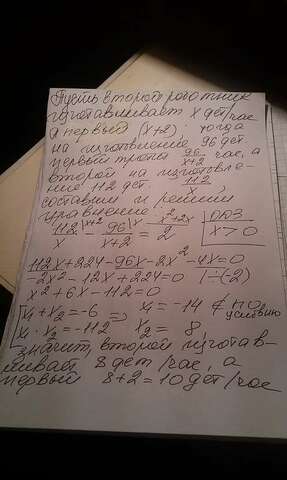 Пусть второй работник
изготавливает x дет/час
а первый (x+2), тогда
на изготовление 96 дет
первый тратит 96/(x+2) час, а
второй на изготовле-
ние 112 дет. 112/x,
составим и решим
уравнение:
112/x - 96/(x+2) = 2 ОДЗ x>0
112x+224-96x-2x²-4x=0
-2x²-12x+224=0 |÷(-2)
x²+6x-112=0
x₁+x₂=-6 => x₁=-14 ∉ по условию
x₁·x₂=-112 x₂= 8
значит, второй изготав-
ливает 8 дет/час, а
первый 8+2=10 дет/час